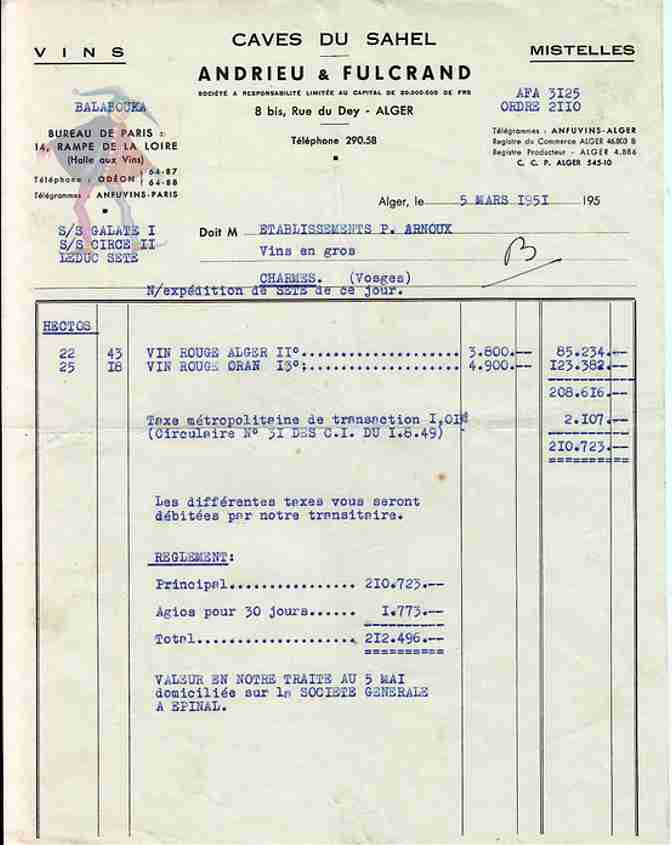 VINS
CAVES DU SAHEL
MISTELLES
ANDRIEU & FULCRAND
SOCIÉTÉ A RESPONSABILITÉ LIMITÉE AU CAPITAL DE 20.000.000 DE FRS
8 bis, Rue du Dey - ALGER
Téléphone 290.58
BALABOUKA
BUREAU DE PARIS :
14, RAMPE DE LA LOIRE
(Halle aux Vins)
Téléphone : ODÉON 64-87
64-88
Télégrammes : ANFUVINS-PARIS
AFA 3I25
ORDRE 2II0
Télégrammes : ANFUVINS-ALGER
Registre du Commerce ALGER 46.803 B
Registre Producteur - ALGER 4.886
C. C. P. ALGER 545-10
Alger, le 5 MARS I95I 195
S/S GALATE I
S/S CIRCE II
LEDUC SETE
Doit M ETABLISSEMENTS P. ARNOUX
Vins en gros
B
CHARMES. (Vosges)
N/expédition de SETE de ce jour.
HECTOS
22 43 VIN ROUGE ALGER II°.................... 3.800.-- 85.234.--
25 I8 VIN ROUGE ORAN I3°;.................... 4.900.-- I23.382.--
208.616.--
Taxe métropolitaine de transaction I,OI% 2.I07.--
(Circulaire N° 3I DES C.I. DU I.8.49)
2I0.723.--
Les différentes taxes vous seront
débitées par notre transitaire.
REGLEMENT:
Principal................ 2I0.723.--
Agios pour 30 jours...... I.773.--
Total.................... 2I2.496.--
VALEUR EN NOTRE TRAITE AU 5 MAI
domiciliée sur la SOCIETE GENERALE
A EPINAL.